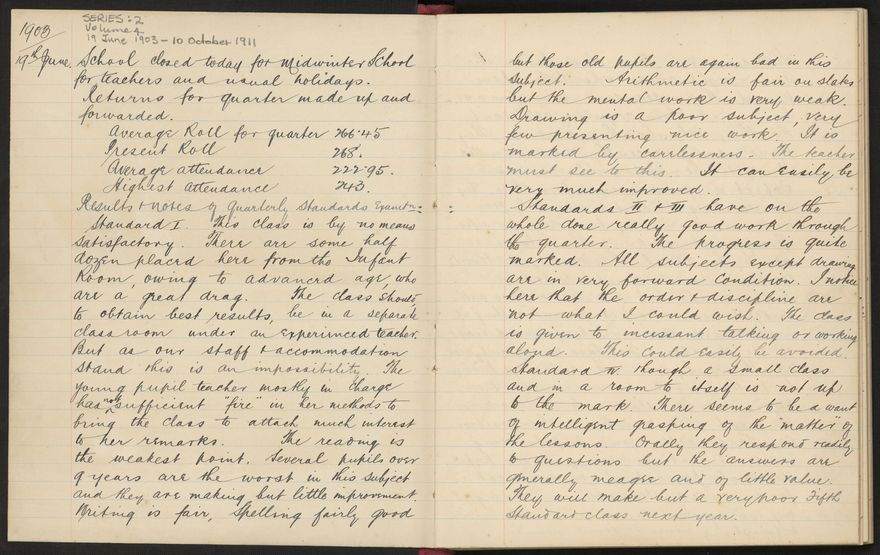 1903
SERIES: 2
Volume 4
19 June 1903 - 10 October 1911
19th June. School closed today for Midwinter School
for teachers and usual holidays.
Returns for quarter made up and
forwarded.
Average Roll for quarter 266.45
Present Roll 268.
Average attendance 222.95.
Highest Attendance 243.
Results & notes of Quarterly Standards Examtn:
Standard I. This class is by no means
satisfactory. There are some half
dozen placed here from the Infant
Room, owing to advanced age, who
are a great drag. The class should
to obtain best results, be in a separate
class room under an experienced teacher.
But as our staff & accommodation
stand this is an impossibility. The
young pupil teacher mostly in charge
has not sufficient "fire" in her methods to
bring the class to attach much interest
to her remarks. The reading is
the weakest point. Several pupils over
9 years are the worst in this subject
and they are making but little improvement.
Writing is fair, Spelling fairly good
but those old pupils are again bad in this
subject. Arithmetic is fair on slates
but the mental work is very weak.
Drawing is a poor subject, very
few presenting nice work. It is
marked by carelessness. The teacher
must see to this. It can easily be
very much improved.
Standards II & III have on the
whole done really good work through
the quarter. The progress is quite
marked. All subjects except drawing
are in very forward condition. I notice
here that the order & discipline are
not what I could wish. The class
is given to incessant talking or working
aloud. This could easily be avoided.
Standard IV. though a small class
and in a room to itself is not up
to the mark. There seems to be a want
of intelligent grasping of the "matter" of
the lessons. Orally they respond readily
to questions but the answers are
generally meagre and of little value.
They will make but a very poor Fifth
Standard class next year.